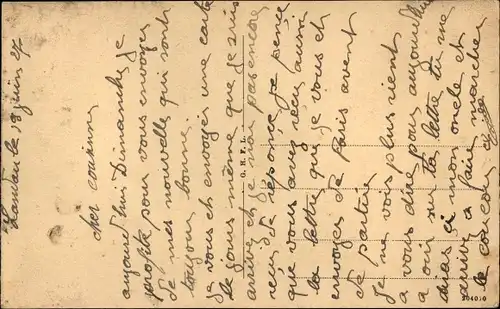 Landau le 19 juin 27
cher cousine
aujourd'hui Dimanche je
profite pour vous envoyer
de mes nouvelle qui sont
toujour bonne.
je vous et envoyer une carte
le jours même que je suis
arrivé et je n'ai pas encore
recu de reponse, je pense
que vous avez reçu aussi
la lettre que je vous et
envoyer de Paris avent
de partir
je ne vois plus rient
a vous dire pour aujourd'hui
a oui sur ta lettre tu me
diras si mon oncle et
arrivé a faire marcher
le coucou
O. H. F. L.
204010